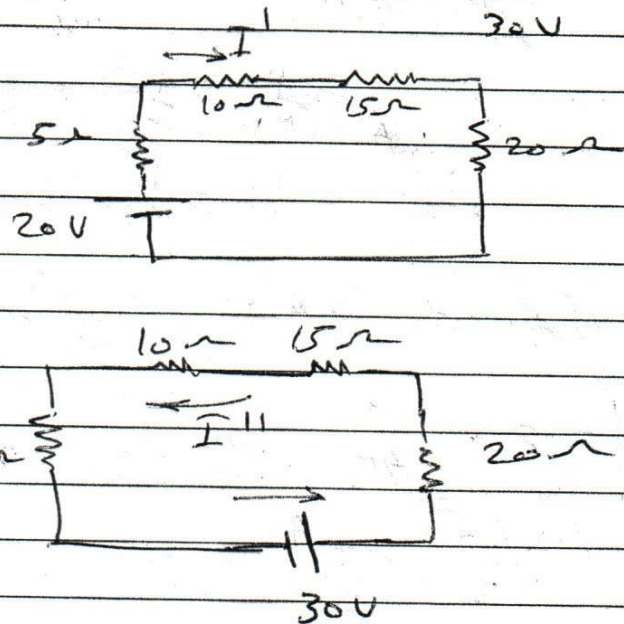 I' 30V
10Ω 15Ω
5Ω 20Ω
20V
10Ω 15Ω
I"
Ω 20Ω
30V